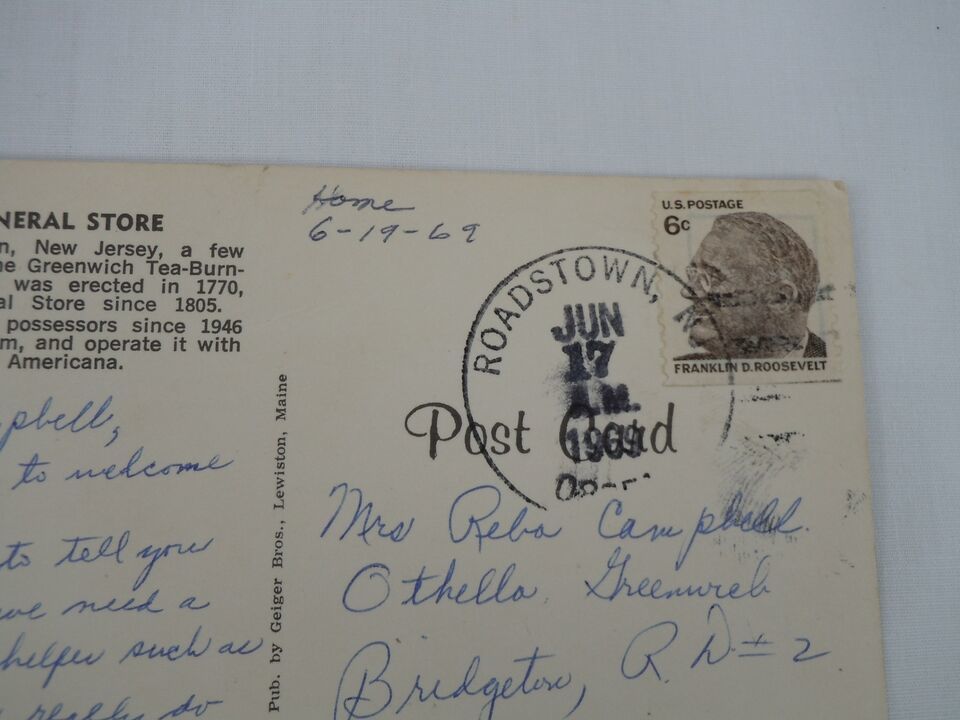 NERAL STORE
n, New Jersey, a few
e Greenwich Tea-Burn-
was erected in 1770,
al Store since 1805.
possessors since 1946
m, and operate it with
Americana.
pbell,
to welcome
to tell you
we need a
helper such as
really do
Pub. by Geiger Bros., Lewiston, Maine
Home
6-19-69
ROADSTOWN, N
JUN
17
A.M.
1969
U.S. POSTAGE
6c
FRANKLIN D. ROOSEVELT
Post Card
Mrs Reba Campbell.
Othello, Greenwich
Bridgeton, R.D # 2